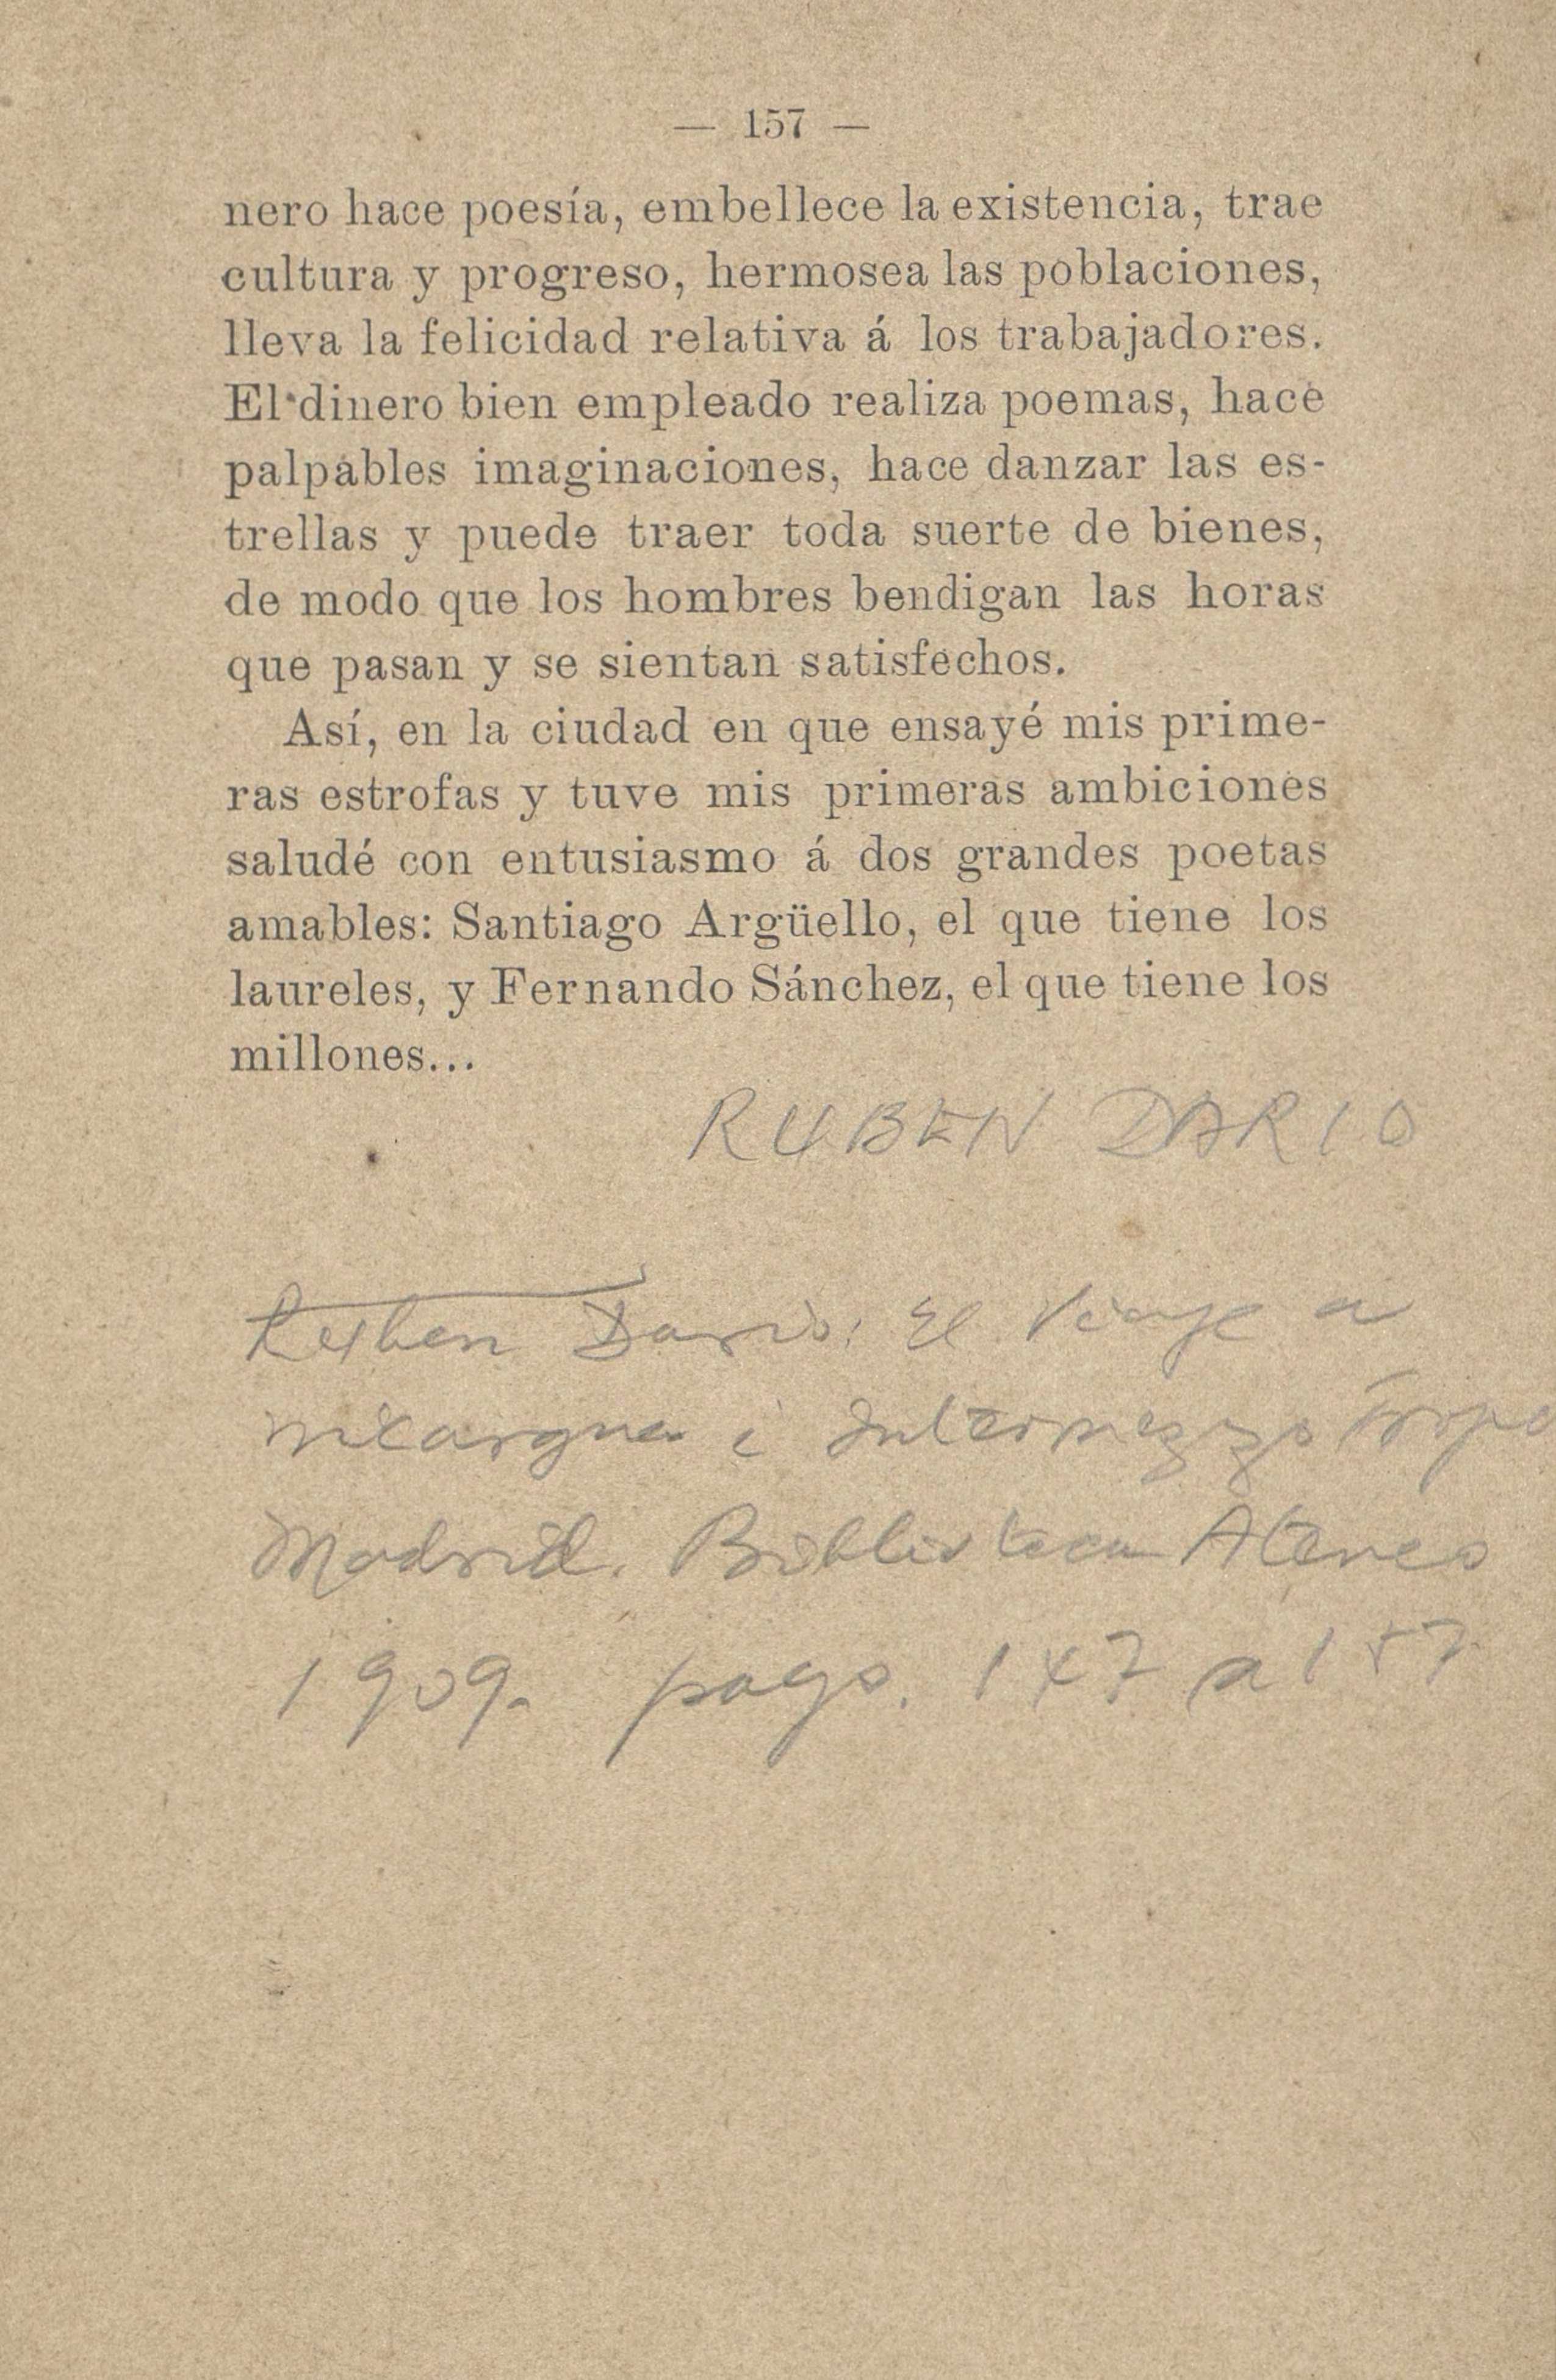 — 157 —
nero hace poesía, embellece la existencia, trae
cultura y progreso, hermosea las poblaciones,
lleva la felicidad relativa á los trabajadores.
El dinero bien empleado realiza poemas, hace
palpables imaginaciones, hace danzar las es-
trellas y puede traer toda suerte de bienes,
de modo que los hombres bendigan las horas
que pasan y se sientan satisfechos.
Así, en la ciudad en que ensayé mis prime-
ras estrofas y tuve mis primeras ambiciones
saludé con entusiasmo á dos grandes poetas
amables: Santiago Argüello, el que tiene los
laureles, y Fernando Sánchez, el que tiene los
millones...
RUBEN DARIO
Ruben Dario: El Viaje a
Nicargua e Intermezzo Trop
Madrid. Biblioteca Ateneo
1909. pags. 147 a 157